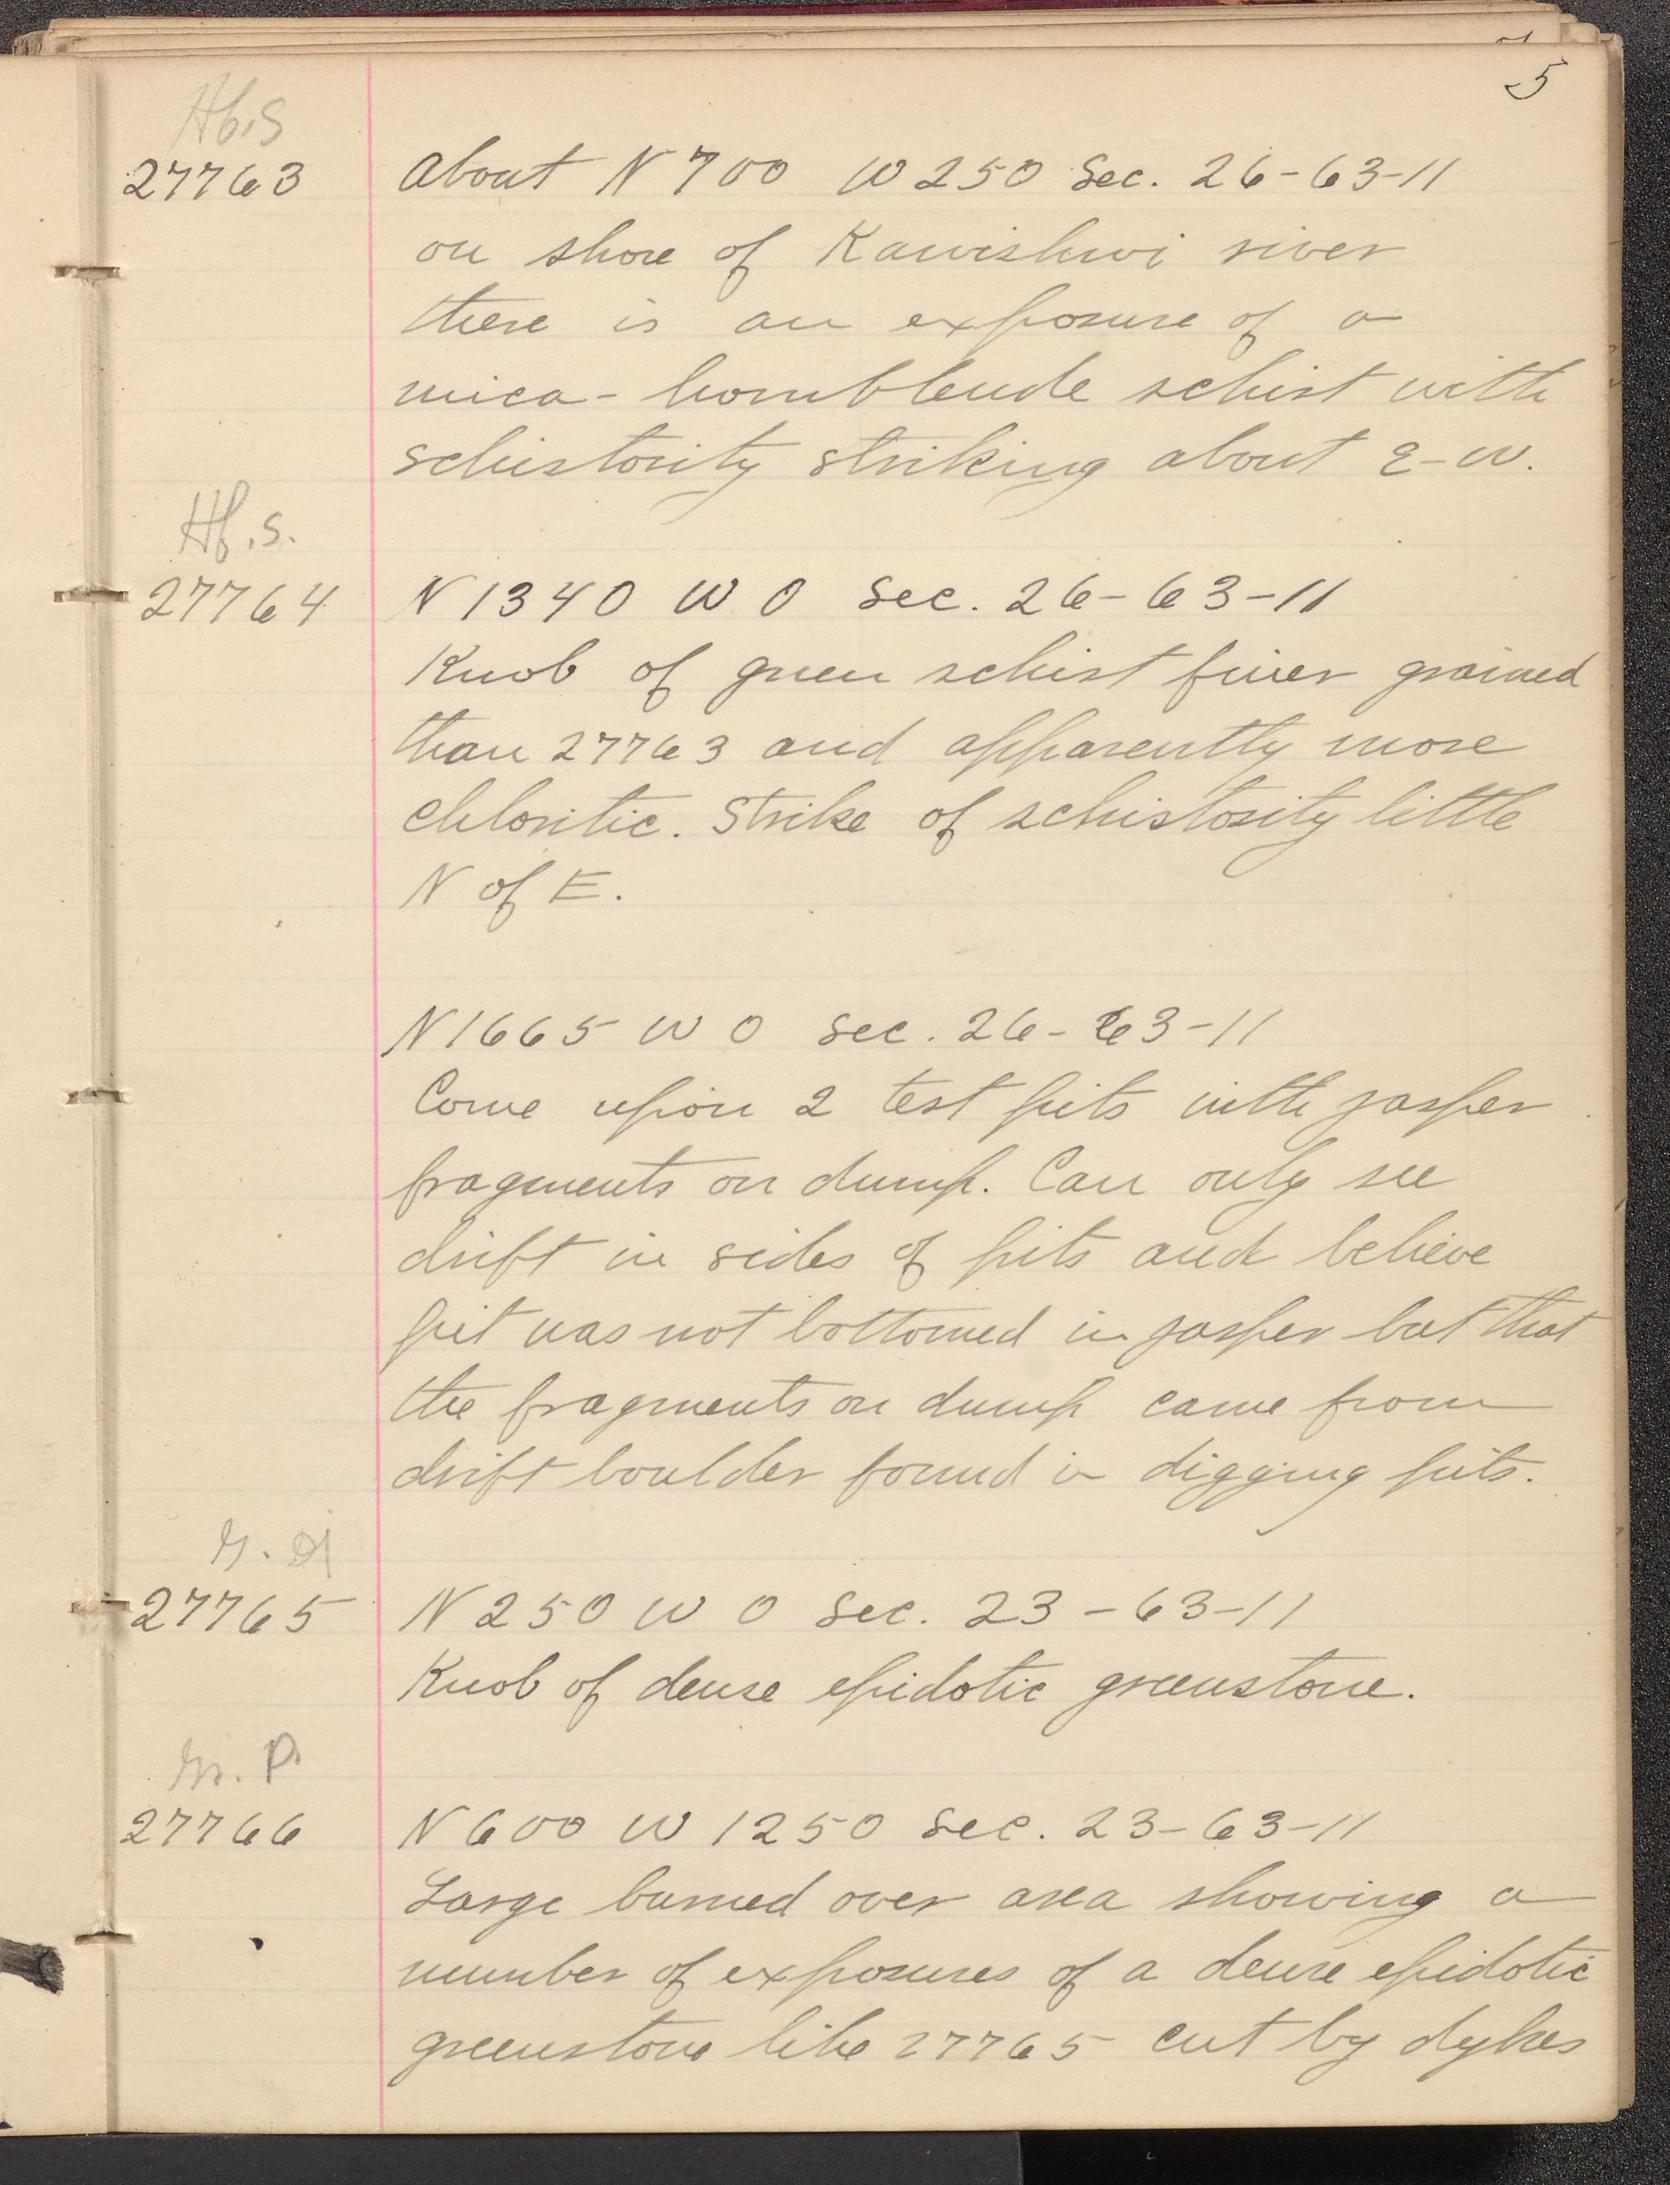 5
Hb.S
27763 About N 700 W 250 Sec. 26-63-11
on shore of Kawishwi river
there is an exposure of a
mica-hornblende schist with
schistosity striking about E-W.
Hb.s.
27764 N 1340 W 0 Sec. 26-63-11
Knob of green schist finer grained
than 27763 and apparently more
chloritic. Strike of schistosity little
N of E.
N 1665 W 0 Sec. 26-63-11
Come upon 2 test pits with jasper
fragments on dump. Can only see
drift in sides of pits and believe
pit was not bottomed in jasper but that
the fragments on dump came from
drift boulder found in digging pits.
27765 N 250 W 0 Sec. 23-63-11
Knob of dense epidotic greenstone.
27766 N 600 W 1250 Sec. 23-63-11
Large burned over area showing a
number of exposures of a dense epidotic
greenstone like 27765 cut by dykes